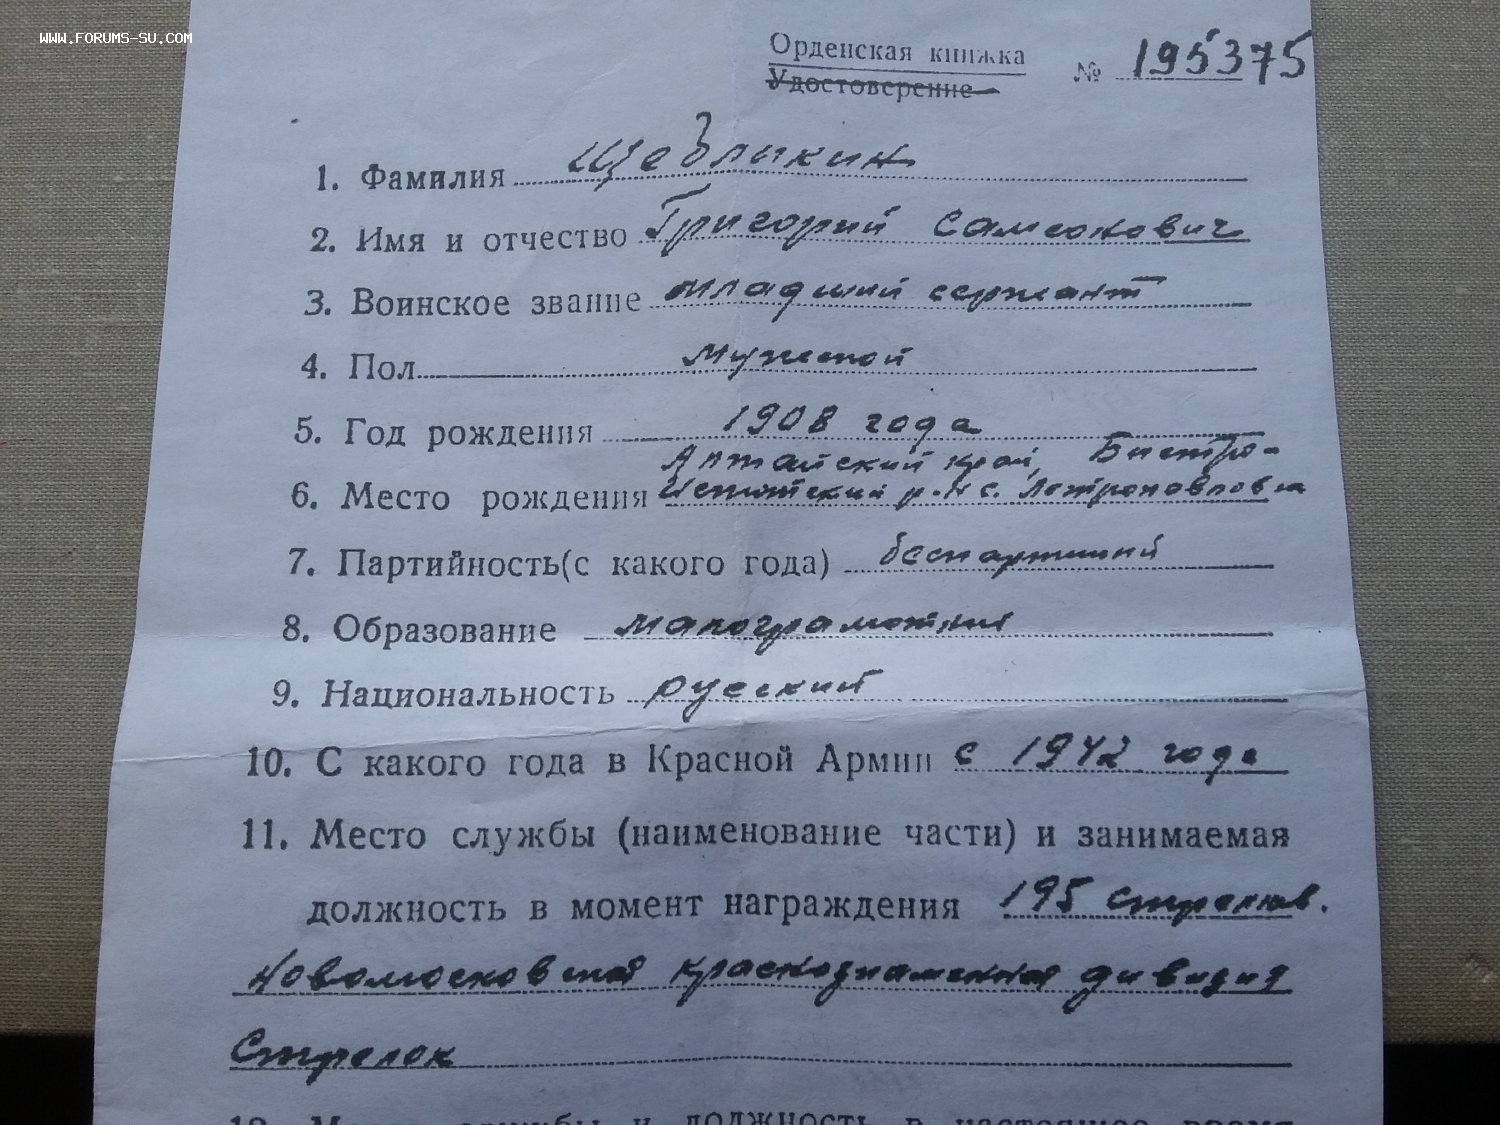 www.forums-su.com
Орденская книжка № 195375
Удостоверение
1. Фамилия Щеблыкин
2. Имя и отчество Григорий Самсонович
3. Воинское звание младший сержант
4. Пол мужской
5. Год рождения 1908 года
Алтайский край, Быстро-
6. Место рождения Истокский р-н с. Петропавловка
7. Партийность (с какого года) беспартийный
8. Образование малограмотный
9. Национальность русский
10. С какого года в Красной Армии с 1942 года
11. Место службы (наименование части) и занимаемая
должность в момент награждения 195 стрелков.
Новомосковская краснознаменная дивизия
Стрелок